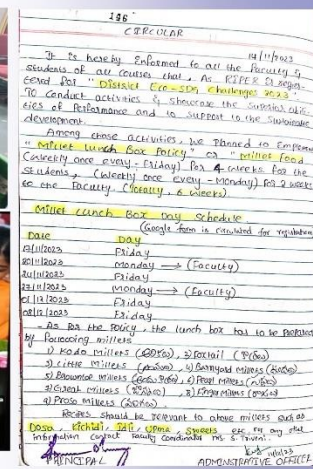 196
CIRCULAR
14/11/2023
It is hereby informed to all the faculty &
students of all courses that, As RIPER is regis-
tered for "District Eco-SDG Challenges 2023"
To conduct activities & showcase the superior abili-
ties of Performance and to support to the Sustainable
development.
Among those activities, we planned to Implement
"Millet Lunch Box Policy" or "Millet food
(weekly once every - Friday) for 4 weeks for the
students, (weekly once every - Monday) for 2 weeks
to the Faculty. (Totally, 6 weeks)
Millet Lunch Box Day Schedule
(Google form is circulated for registration
Date Day
17/11/2023 Friday
20/11/2023 Monday → (Faculty)
24/11/2023 Friday
27/11/2023 Monday → (Faculty)
01/12/2023 Friday
08/12/2023 Friday
- As per the Policy, the lunch box has to be prepared
by millets
1) Kodo Millets 2) Foxtail
3) Little Millets 4) Barnyard Millets
5) Browntop Millets 6) Pearl Millets
7) Great Millets 8) Finger Millets
9) Proso Millets
Recipes should be relevant to above millets such as
Dosa, Kichidi, Idli, Upma, Sweets etc, for any other
information contact faculty coordinator Ms S.
PRINCIPAL ADMINISTRATIVE OFFICER